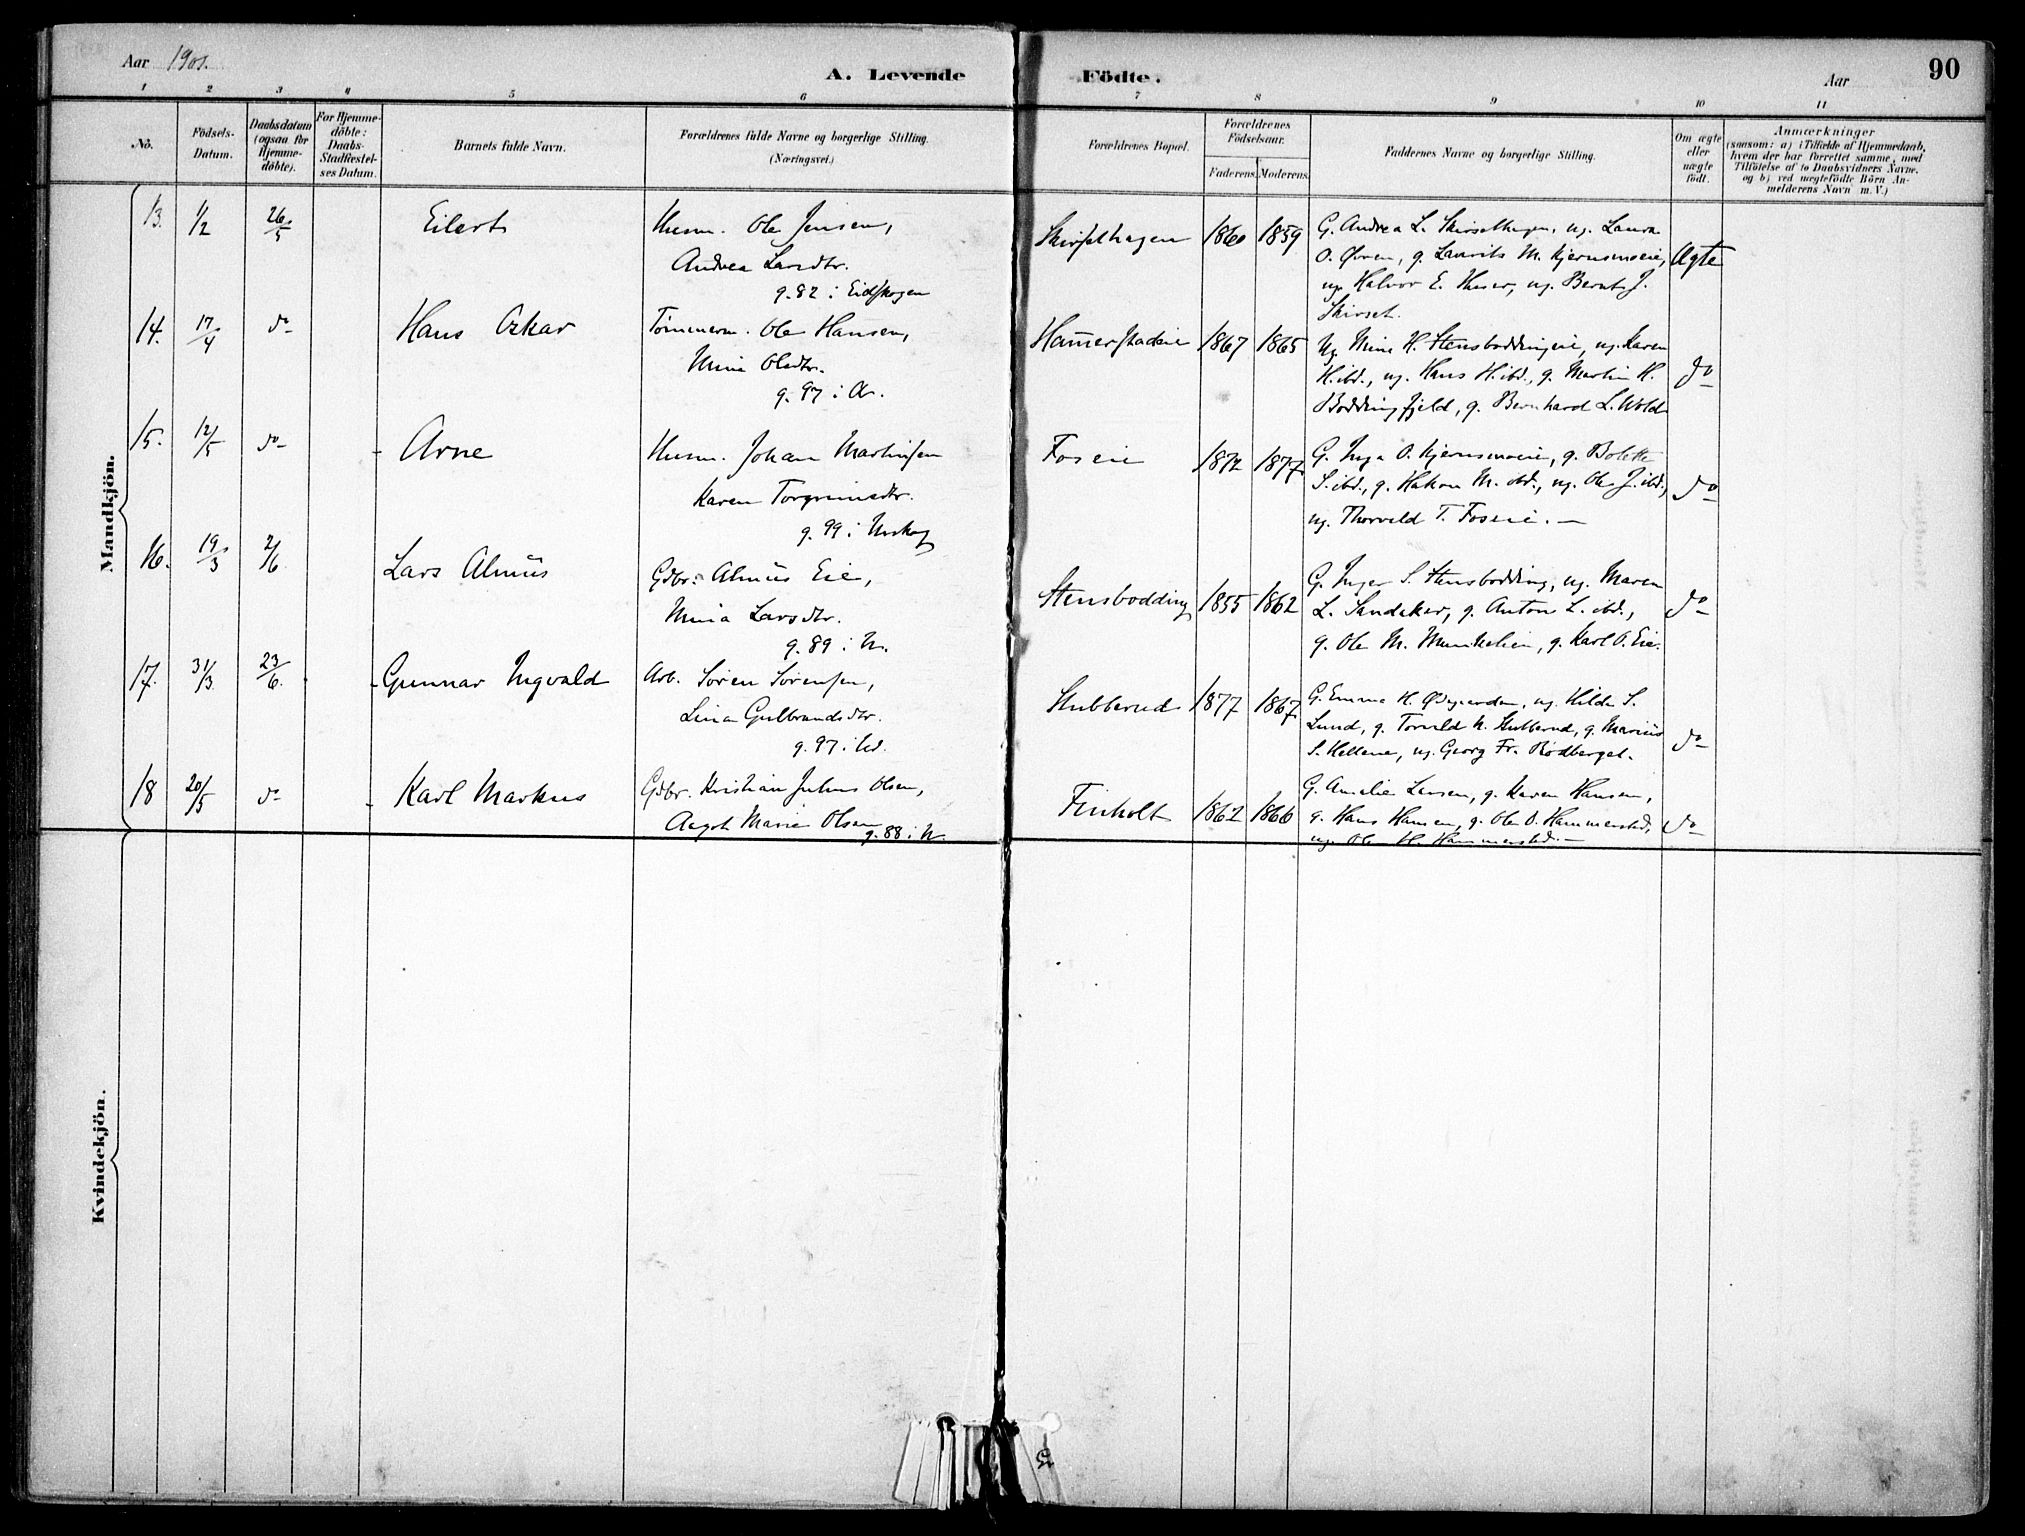 Aar 1901.
A. Levende Födte.
Aar
90
1 2 3 4 5 6 7 8 9 10 11
No.
Födsels-
Datum.
Daabsdatum
(ogsaa for
Hjemme-
döbte).
For Hjemme-
döbte:
Daabs-
Stadfæstel-
ses Datum.
Barnets fulde Navn.
Forældrenes fulde Navne og borgerlige Stilling.
(Næringsvei.)
Forældrenes Bopæl.
Forældrenes
Födselsaar.
Faderens. Moderens.
Faddernes Navne og borgerlige Stilling.
Om ægte
eller
uægte
født.
Anmærkninger
(saasom: a) i Tilfælde af Hjemmedaab,
hvem der har forrettet samme, med
Tilföielse af to Daabsvidners Navne,
og b) ved uægtefödte Börn An-
melderens Navn m. V.)
Mandkjön.
13. 1/2 26/5 Eilert Husm. Ole Jensen,
Andrea Larsdtr.
g. 82 i Eidskogen
Skirselhagen 1860 1859 G. Andrea L. Skirselhagen, ug. Laura
O. Øvren, g. Laurits M. Kjernsmoeie,
ug. Halvor E. Huser, ug. Bernt J.
Skirset.
Ægte
14. 17/4 do Hans Oskar Tømmerm. Ole Hansen,
Mina Olsdtr.
g. 97 i A.
Hamerstadeie 1867 1865 Ug. Mina H. Stensboddingeie, ug. Karen
H. ibd., ug. Hans H. ibd., g. Martin H.
Boddingfjeld, g. Bernhard L. Wold
do
15. 12/5 do Arne Husm. Johan Martinsen
Karen Torgrimsdtr.
g. 99 i Urskog
Foseie 1872 1877 G. Inga O. Kjernsmoeie, g. Bolette
S. ibd., g. Hakon M. ibd., ug. Ole J. ibd.,
ug. Thorvald T. Foseie.
do
16. 19/3 2/6 Lars Almus Gdbr. Almus Eie,
Mina Larsdtr.
g. 89 i U.
Stensbodding 1855 1862 G. Inger S. Stensbodding, ug. Maren
L. Sandaker, g. Anton L. ibd.,
g. Ole M. Munkelien, g. Karl O. Eie.
do
17. 31/3 23/6 Gunnar Ingvald Arb. Søren Sørensen,
Lina Gulbrandsdtr.
g. 97 i
Stubberud 1877 1867 G. Emma H. Ødegaarden, ug. Hilda S.
Lund, g. Torvald N. Stubberud, g. Marius
S. Hellene, ug. Georg Fr. Rødberget.
do
18 20/5 do Karl Markus Gdbr. Kristian Julius Olsen,
Aagot Marie Olsen
g. 88 i U.
Finholt 1862 1866 G. Amalie Larsen, g. Karen Hansen,
g. Hans Hansen, g. Ole O. Hammerstad,
ug. Ole H. Hammerstad.
do
Kvindekjön.